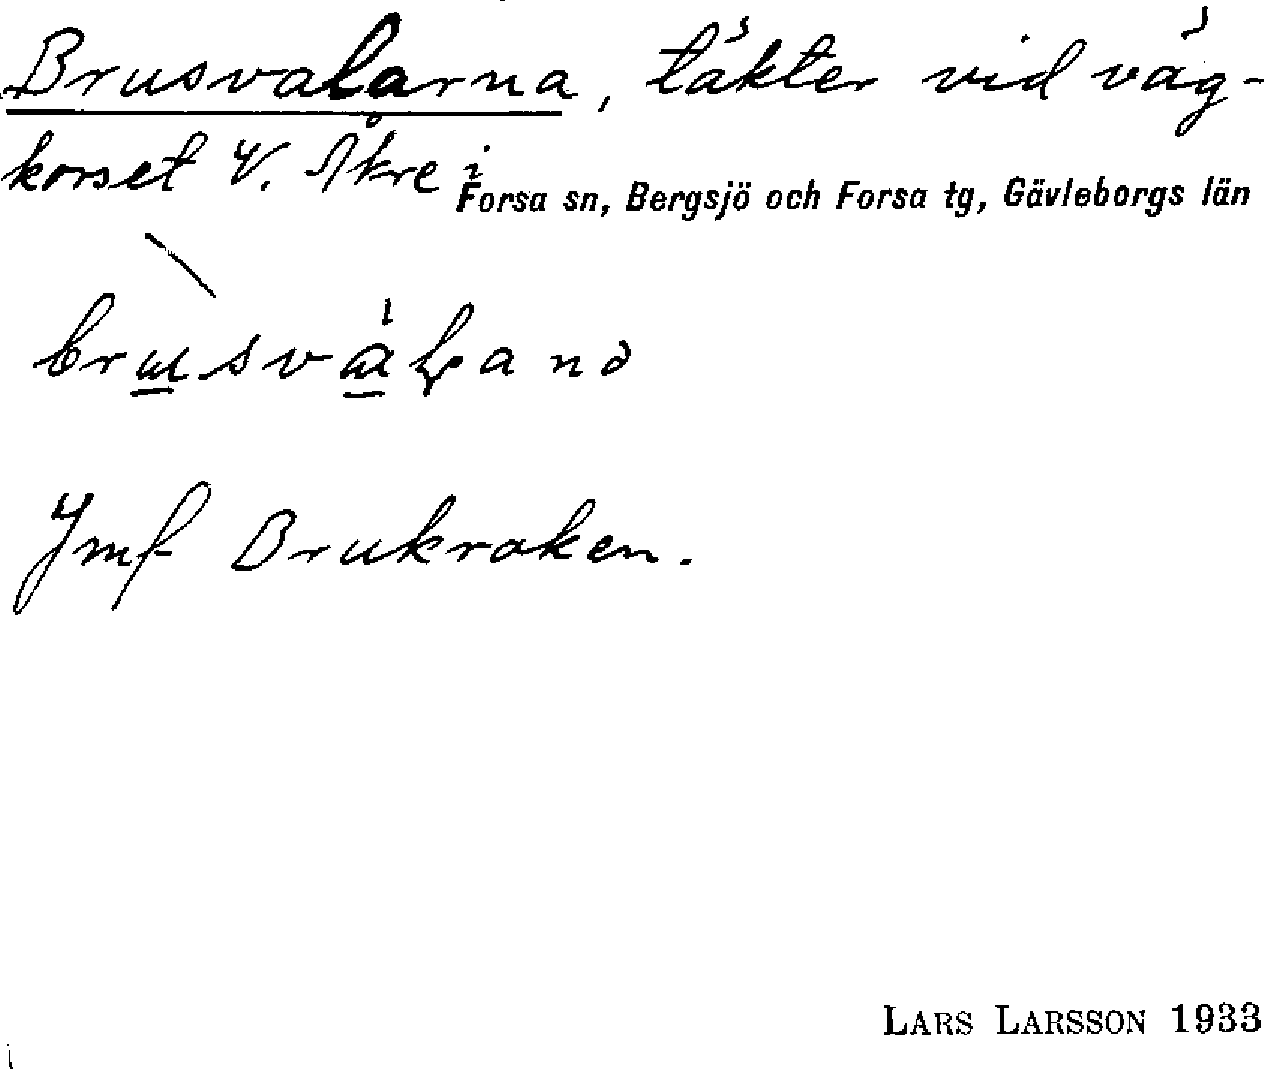 Brusvalarna, täkter vid väg-
korset V. Åkre i Forsa sn, Bergsjö och Forsa tg, Gävleborgs län
Jmf Brukroken.
LARS LARSSON 1933